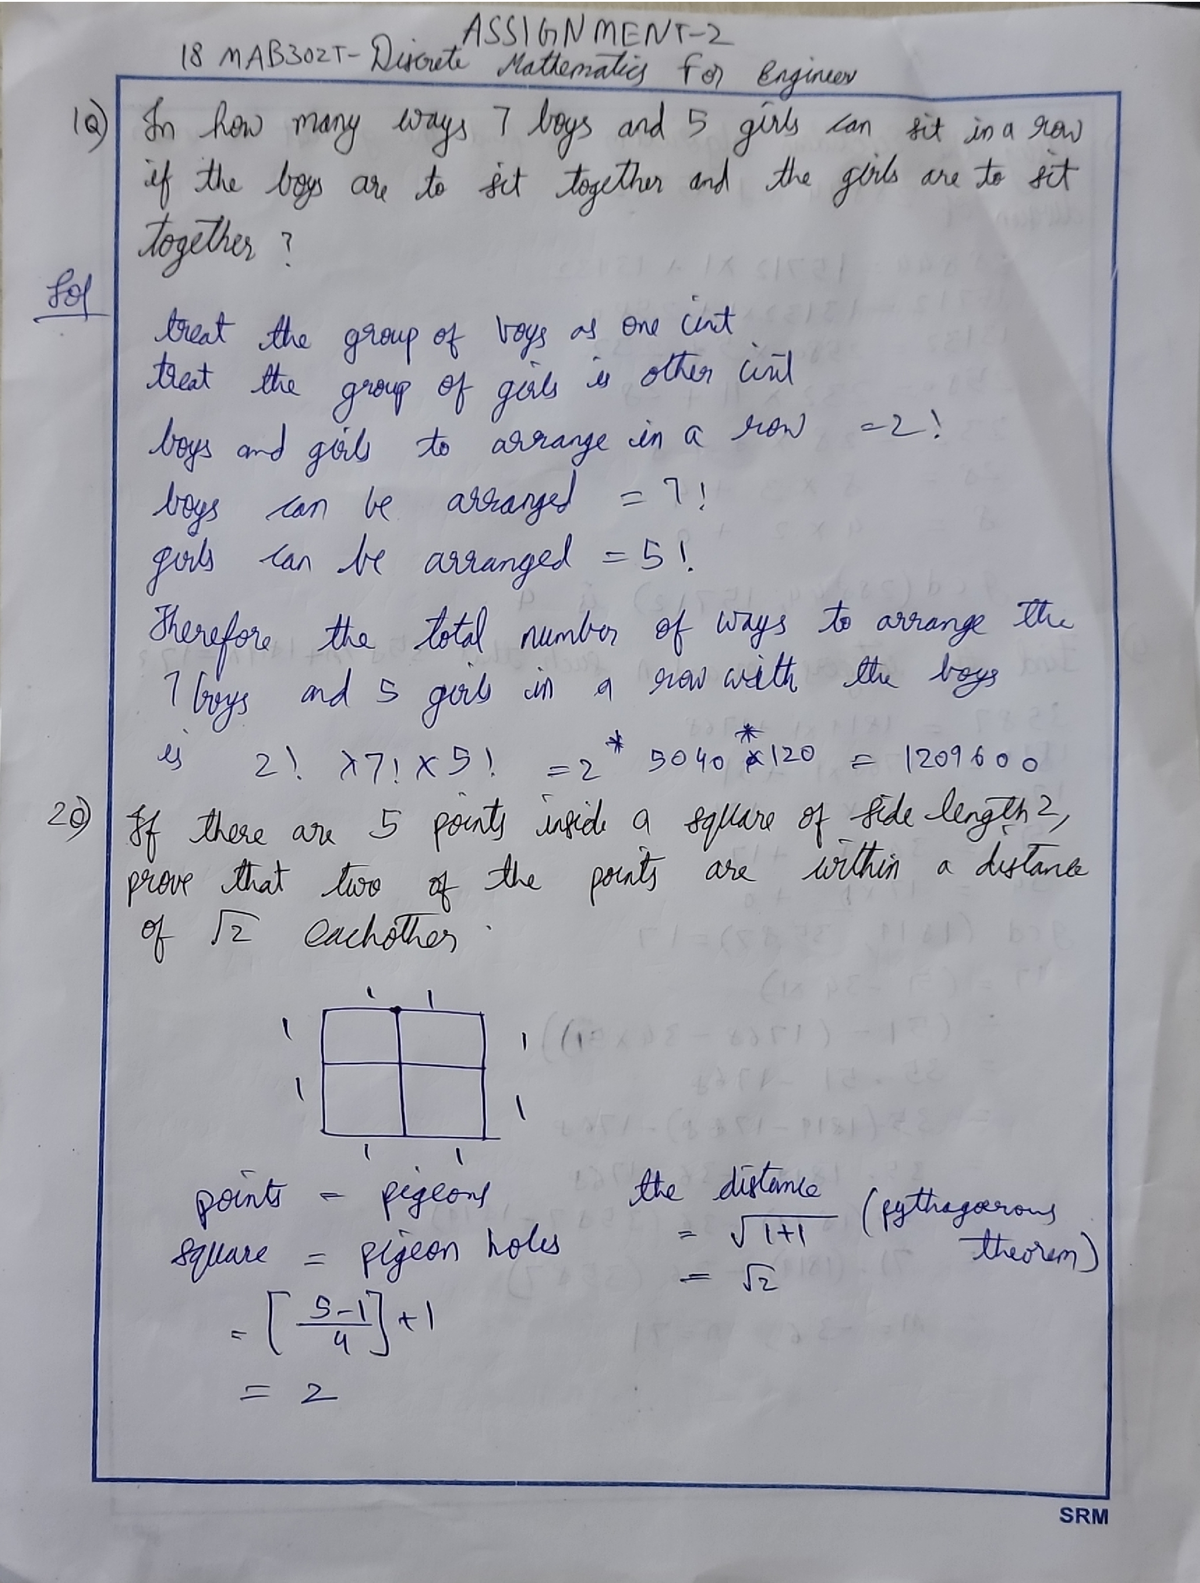 ASSIGNMENT-2
18 MAB302T- Discrete Mathematics for Engineer
1Q) In how many ways 7 boys and 5 girls can sit in a row
if the boys are to sit together and the girls are to sit
together ?
Sol
treat the group of boys as one
treat the group of girls is other
boys and girls to arrange in a row = 2!
boys can be arranged = 7!
girls can be arranged = 5!
Therefore the total number of ways to arrange the
7 boys and 5 girls in a row with the boys
is 2! x7! x 5! = 2 * 5040 * 120 = 1209600
2Q) If there are 5 points inside a square of side length 2,
prove that two of the points are within a distance
of √2 eachother.
1 1
1 1
1 1
1 1
points = pigeons
square = pigeon holes
= [5-1/4] + 1
= 2
the distance
= √1+1 (pythagoerous theorem)
= √2
SRM